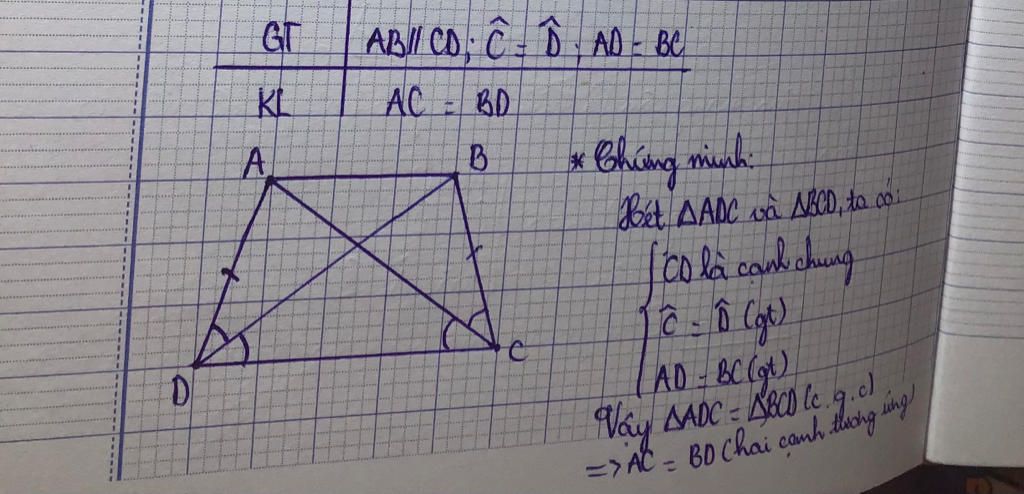 GT AB // CD ; Ĉ = D̂ ; AD = BC
KL AC = BD
A B
D C
* Chứng minh:
Xét ΔADC và ΔBCD, ta có:
CD là cạnh chung
Ĉ = D̂ (gt)
AD = BC (gt)
Vậy ΔADC = ΔBCD (c.g.c)
=> AC = BD (hai cạnh tương ứng)